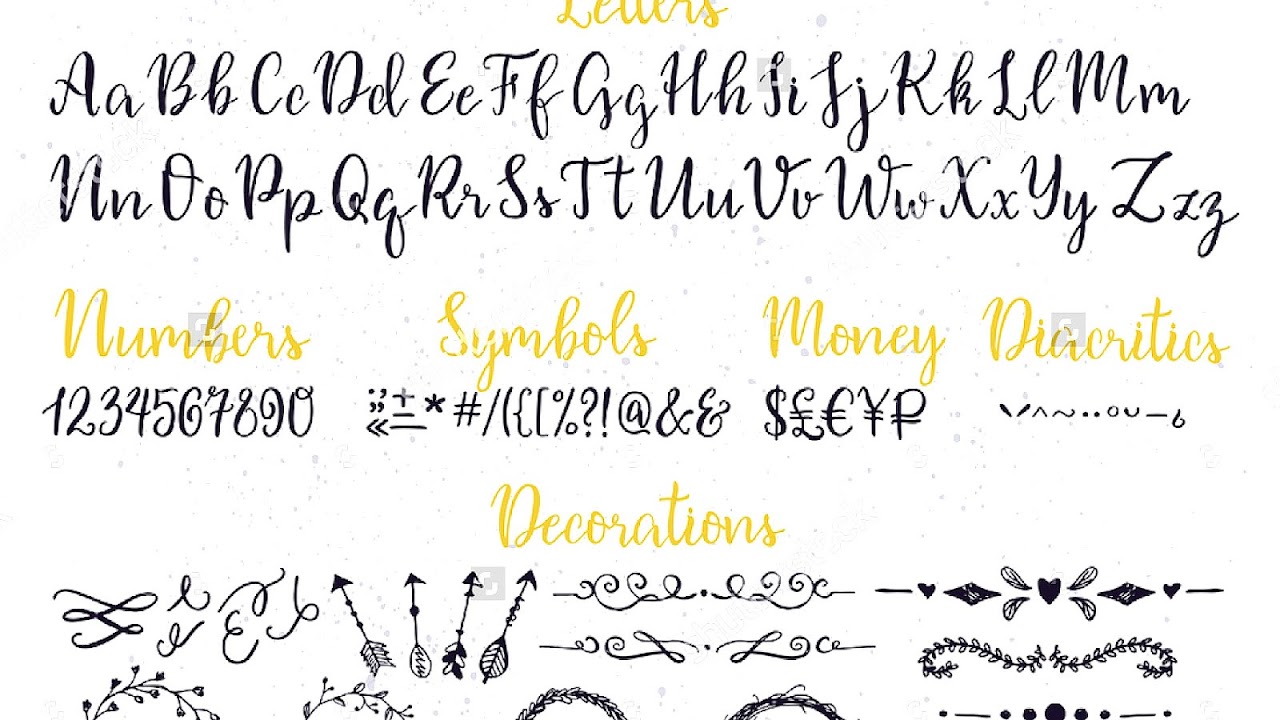 Letters
Aa Bb Cc Dd Ee Ff Gg Hh Ii Jj Kk Ll Mm
Nn Oo Pp Qq Rr Ss Tt Uu Vv Ww Xx Yy Zzz
Numbers Symbols Money Diacritics
1234567890 * # / ( { [ % ? ! @ & & $ £ € ¥ ₽
Decorations